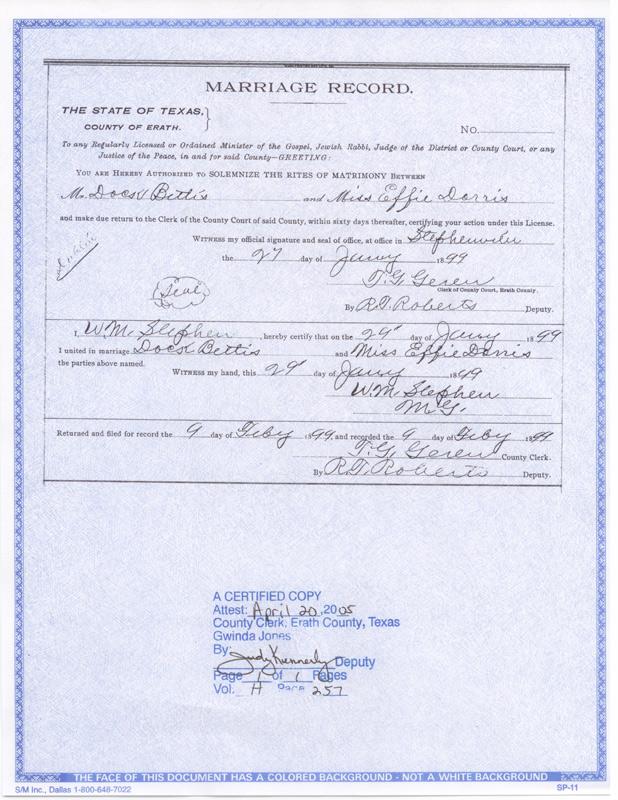 MARRIAGE RECORD.
THE STATE OF TEXAS,
COUNTY OF ERATH.
No.
To any Regularly Licensed or Ordained Minister of the Gospel, Jewish Rabbi, Judge of the District or County Court, or any
Justice of the Peace, in and for said County—GREETING:
YOU ARE HEREBY AUTHORIZED TO SOLEMNIZE THE RITES OF MATRIMONY BETWEEN
Mr. Dock Bettis and Miss Effie Dorris
and make due return to the Clerk of the County Court of said County, within sixty days thereafter, certifying your action under this License.
WITNESS my official signature and seal of office, at office in Stephenville
the 27 day of Jany 1899
Seal
T. G. Geren
Clerk of County Court, Erath County.
By R. T. Roberts Deputy.
I, W. M. Stephen, hereby certify that on the 29" day of Jany 1899
I united in marriage Dock Bettis and Miss Effie Dorris
the parties above named.
WITNESS my hand, this 29" day of Jany 1899
W. M. Stephen
M. G.
Returned and filed for record the 9 day of Feby 1899, and recorded the 9 day of Feby 1899
T. G. Geren County Clerk.
By R. T. Roberts Deputy.
A CERTIFIED COPY
Attest: April 20, 2005
County Clerk, Erath County, Texas
Gwinda Jones
By: Judy Kennerly Deputy
Page 1 of 1 Pages
Vol. H Page 257
THE FACE OF THIS DOCUMENT HAS A COLORED BACKGROUND - NOT A WHITE BACKGROUND
S/M Inc., Dallas 1-800-648-7022
SP-11